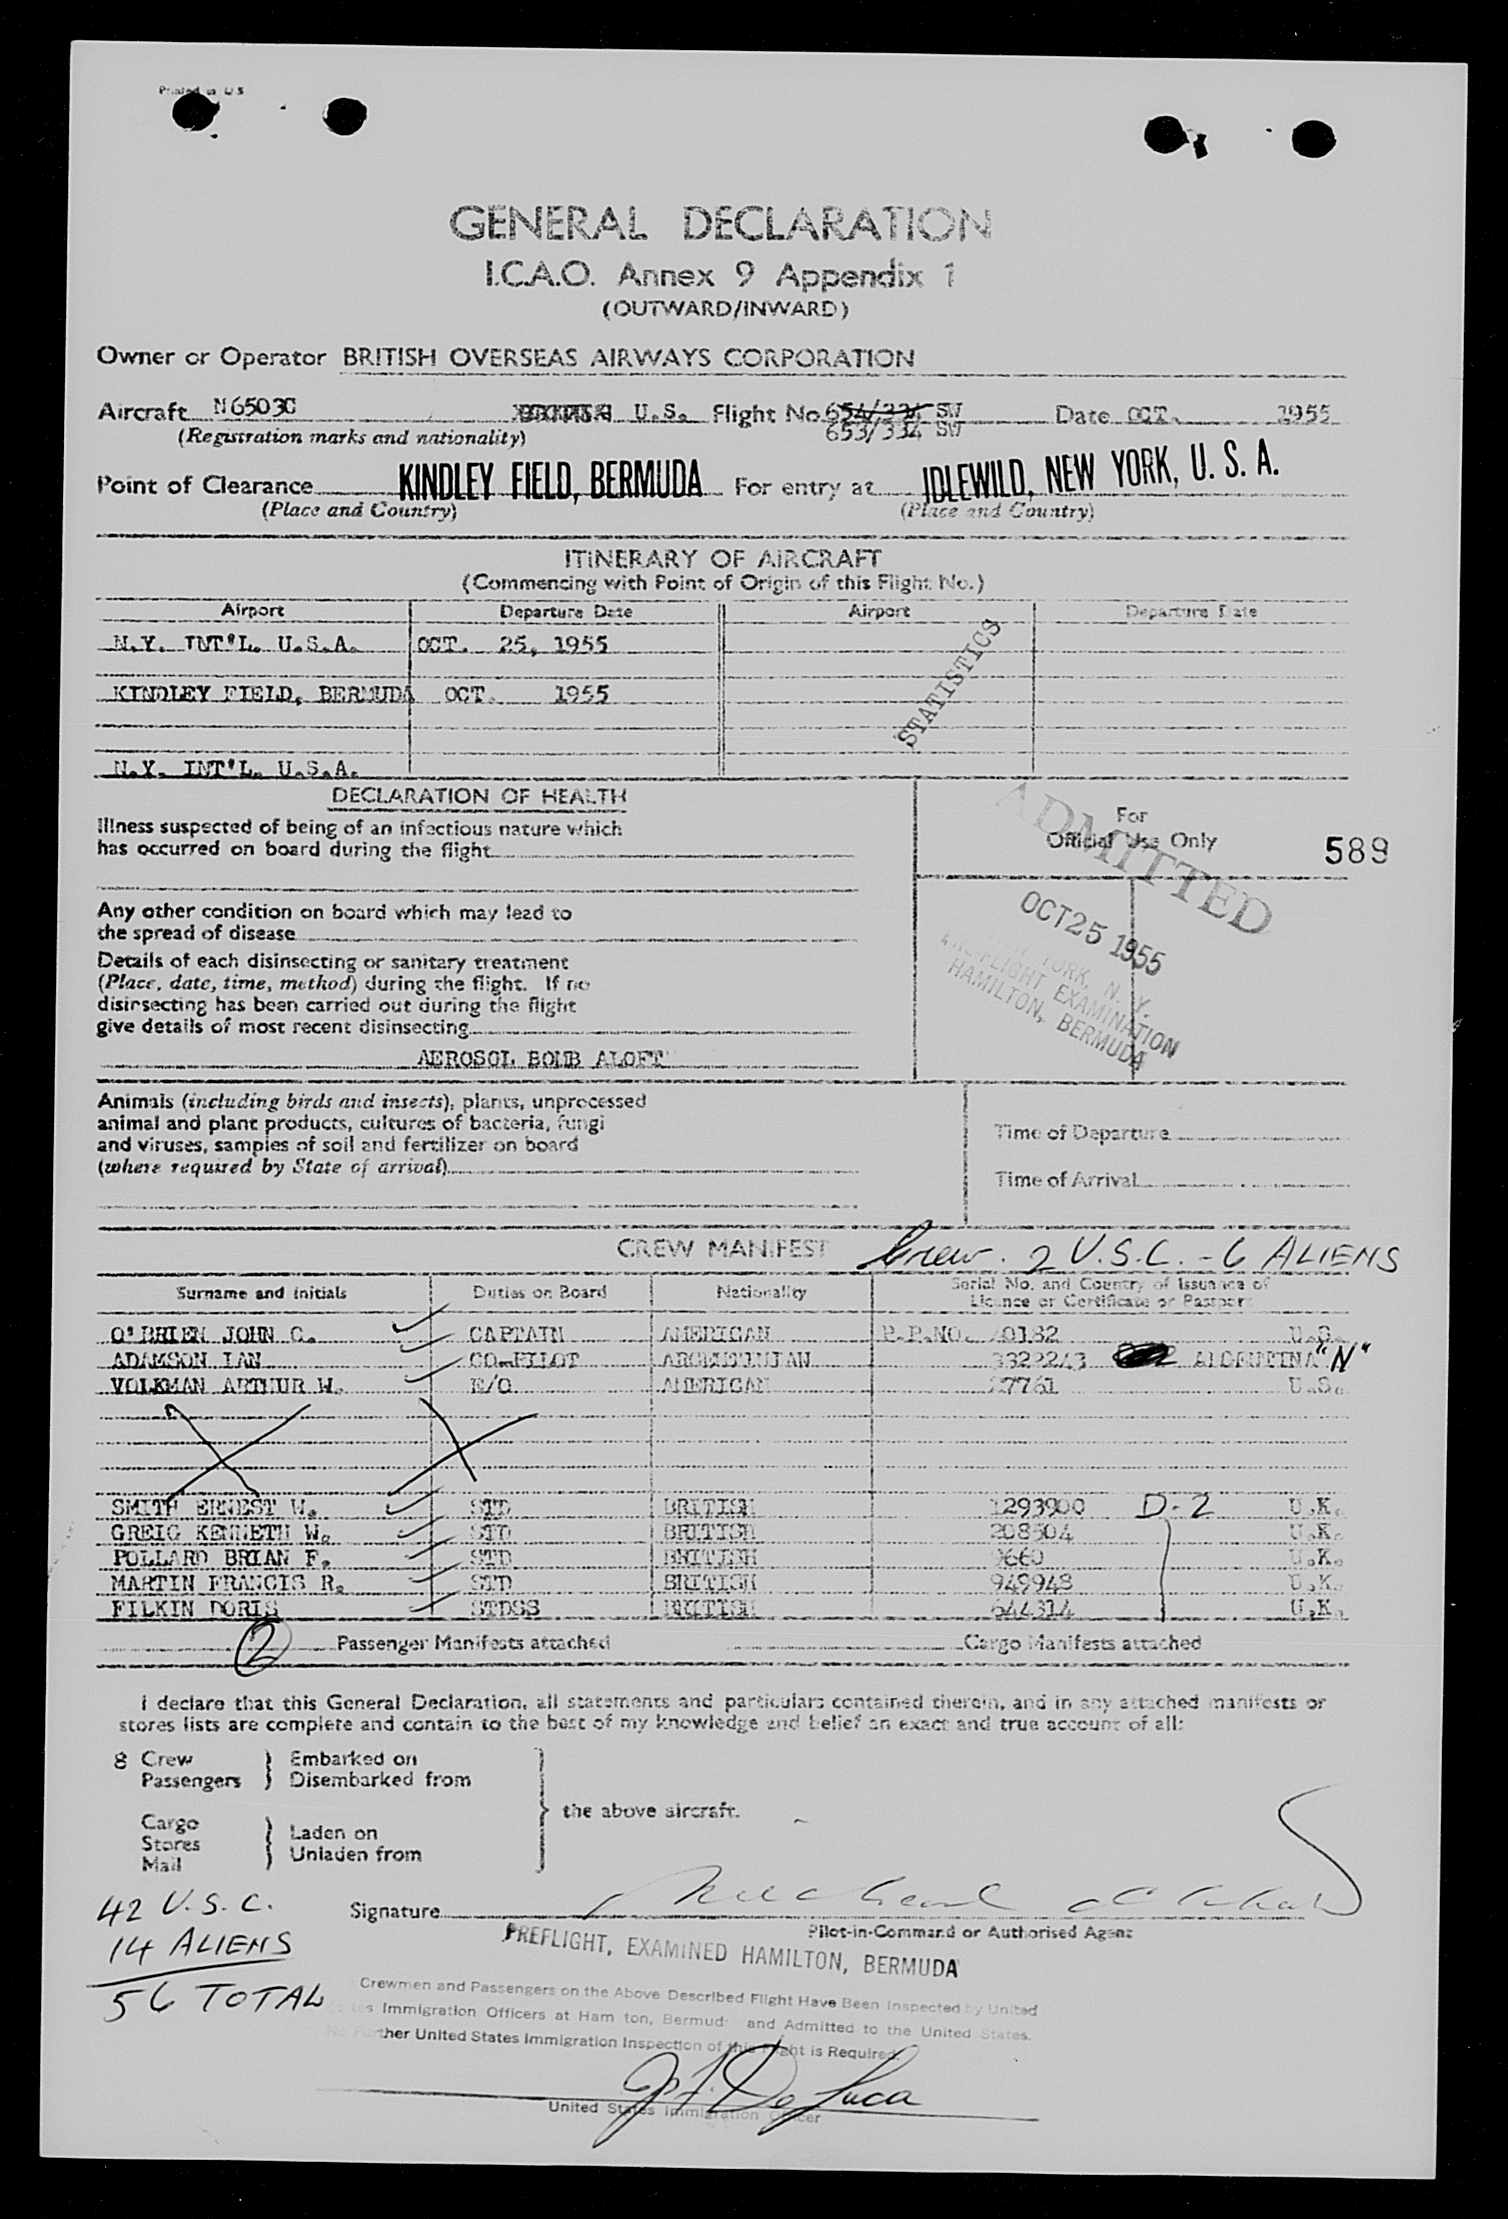 Printed in U.S
GENERAL DECLARATION
I.C.A.O. Annex 9 Appendix 1
(OUTWARD/INWARD)
Owner or Operator BRITISH OVERSEAS AIRWAYS CORPORATION
Aircraft N6503C U.S. Flight No. 654/334 SW Date OCT. 1955
(Registration marks and nationality) 653/334 SW
Point of Clearance KINDLEY FIELD, BERMUDA For entry at IDLEWILD, NEW YORK, U. S. A.
(Place and Country) (Place and Country)
ITINERARY OF AIRCRAFT
(Commencing with Point of Origin of this Flight No.)
Airport Departure Date Airport Departure Date
N.Y. INT'L. U.S.A. OCT. 25, 1955
STATISTICS
KINDLEY FIELD, BERMUDA OCT. 1955
N.Y. INT'L. U.S.A.
DECLARATION OF HEALTH
Illness suspected of being of an infectious nature which
has occurred on board during the flight
Any other condition on board which may lead to
the spread of disease
Details of each disinsecting or sanitary treatment
(Place, date, time, method) during the flight. If no
disinsecting has been carried out during the flight
give details of most recent disinsecting
AEROSOL BOMB ALOFT
For
Official Use Only
589
ADMITTED
OCT 25 1955
YORK, N. Y.
PREFLIGHT EXAMINATION
HAMILTON, BERMUDA
Animals (including birds and insects), plants, unprocessed
animal and plant products, cultures of bacteria, fungi
and viruses, samples of soil and fertilizer on board
(where required by State of arrival)
Time of Departure
Time of Arrival
CREW MANIFEST Crew. 2 U.S.C. - 6 ALIENS
Surname and initials Duties on Board Nationality Serial No. and Country of Issuance of
Licence or Certificate or Passport
O'BRIEN JOHN C. CAPTAIN AMERICAN P.P.NO. 70182 U.S.
ADAMSON IAN CO-PILOT ARGENTINIAN 3322243 ARGENTINA "N"
VOLKMAN ARTHUR W. E/O AMERICAN 27761 U.S.
SMITH ERNEST W. STD BRITISH 1293900 D-2 U.K.
GREIG KENNETH W. STD BRITISH 208504 U.K.
POLLARD BRIAN F. STD BRITISH 9660 U.K.
MARTIN FRANCIS R. STD BRITISH 949948 U.K.
FILKIN DORIS STDSS BRITISH 644314 U.K.
2 Passenger Manifests attached Cargo Manifests attached
I declare that this General Declaration, all statements and particulars contained therein, and in any attached manifests or
stores lists are complete and contain to the best of my knowledge and belief an exact and true account of all:
8 Crew Embarked on
Passengers Disembarked from
the above aircraft.
Cargo Laden on
Stores Unladen from
Mail
42 U.S.C.
14 ALIENS
56 TOTAL
Signature
Pilot-in-Command or Authorised Agent
PREFLIGHT, EXAMINED HAMILTON, BERMUDA
Crewmen and Passengers on the Above Described Flight Have Been Inspected by United
Immigration Officers at Ham ton, Bermud and Admitted to the United States.
No Further United States Immigration Inspection of this Flight is Required.
De Luca
United States Immigration Officer